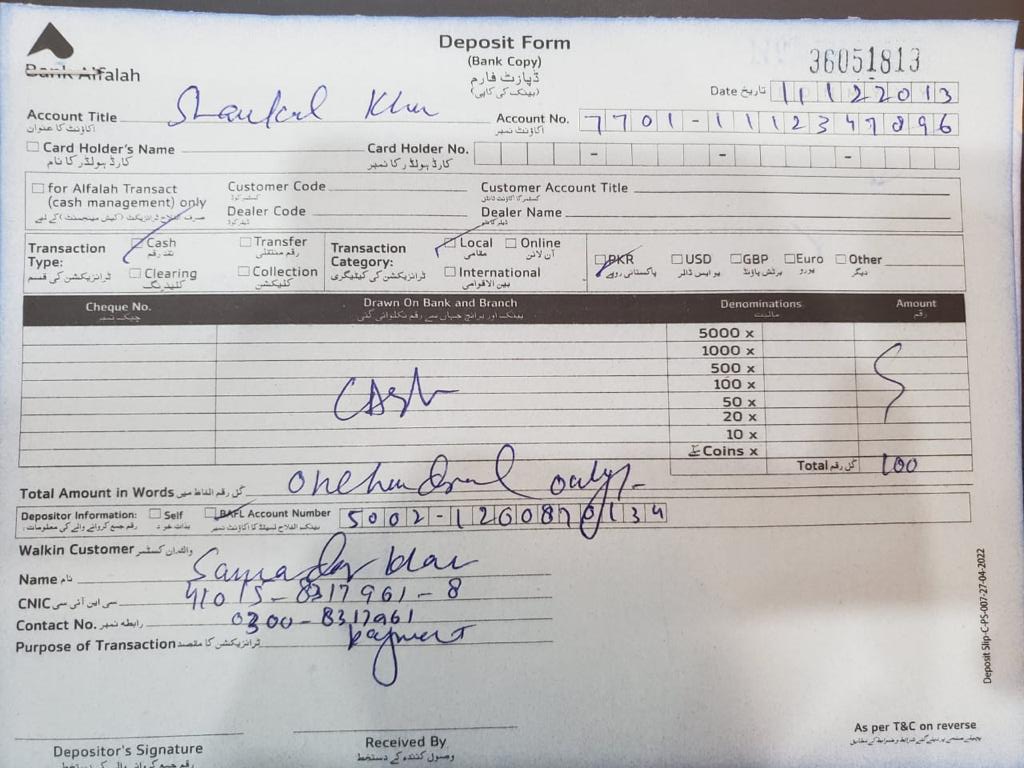 Bank Alfalah
Deposit Form
(Bank Copy)
ڈپازٹ فارم
(بینک کی کاپی)
36051813
Date تاریخ 11122013
Account Title Khan
اکاؤنٹ کا عنوان
Account No. 7701-1112347896
اکاؤنٹ نمبر
Card Holder's Name
کارڈ ہولڈر کا نام
Card Holder No. - - -
کارڈ ہولڈر کا نمبر
for Alfalah Transact
(cash management) only
Customer Code
کسٹمر کوڈ
Customer Account Title
کسٹمر اکاؤنٹ ٹائٹل
Dealer Code
ڈیلر کوڈ
Dealer Name
ڈیلر کا نام
Transaction Type:
ٹرانزیکشن کی قسم
Cash نقد رقم
Transfer رقم منتقلی
Clearing کلیئرنگ
Collection کلیکشن
Transaction Category:
ٹرانزیکشن کی کیٹیگری
Local مقامی
Online آن لائن
International بین الاقوامی
PKR پاکستانی روپے
USD یو ایس ڈالر
GBP برٹش پاؤنڈ
Euro یورو
Other دیگر
Cheque No. چیک نمبر
Drawn On Bank and Branch
بینک اور برانچ جہاں سے رقم نکلوائی گئی
Denominations مالیت
Amount رقم
5000 x
1000 x
500 x
100 x
50 x
20 x
10 x
Coins x
Cash
Total کل رقم 100
Total Amount in Words کل رقم الفاظ میں One hundred only/-
Depositor Information:
رقم جمع کروانے والے کی معلومات:
Self بذات خود
BAFL Account Number 5002-1260870134
بینک الفلاح لمیٹڈ کا اکاؤنٹ نمبر
Walkin Customer
Name نام Khan
CNIC سی این آئی سی 41015-8317961-8
Contact No. رابطہ نمبر 0300-8317961
Purpose of Transaction ٹرانزیکشن کا مقصد payment
Depositor's Signature
رقم جمع کروانے والے کے دستخط
Received By
وصول کنندہ کے دستخط
As per T&C on reverse
Deposit Slip-C-PS-007-27-04-2022